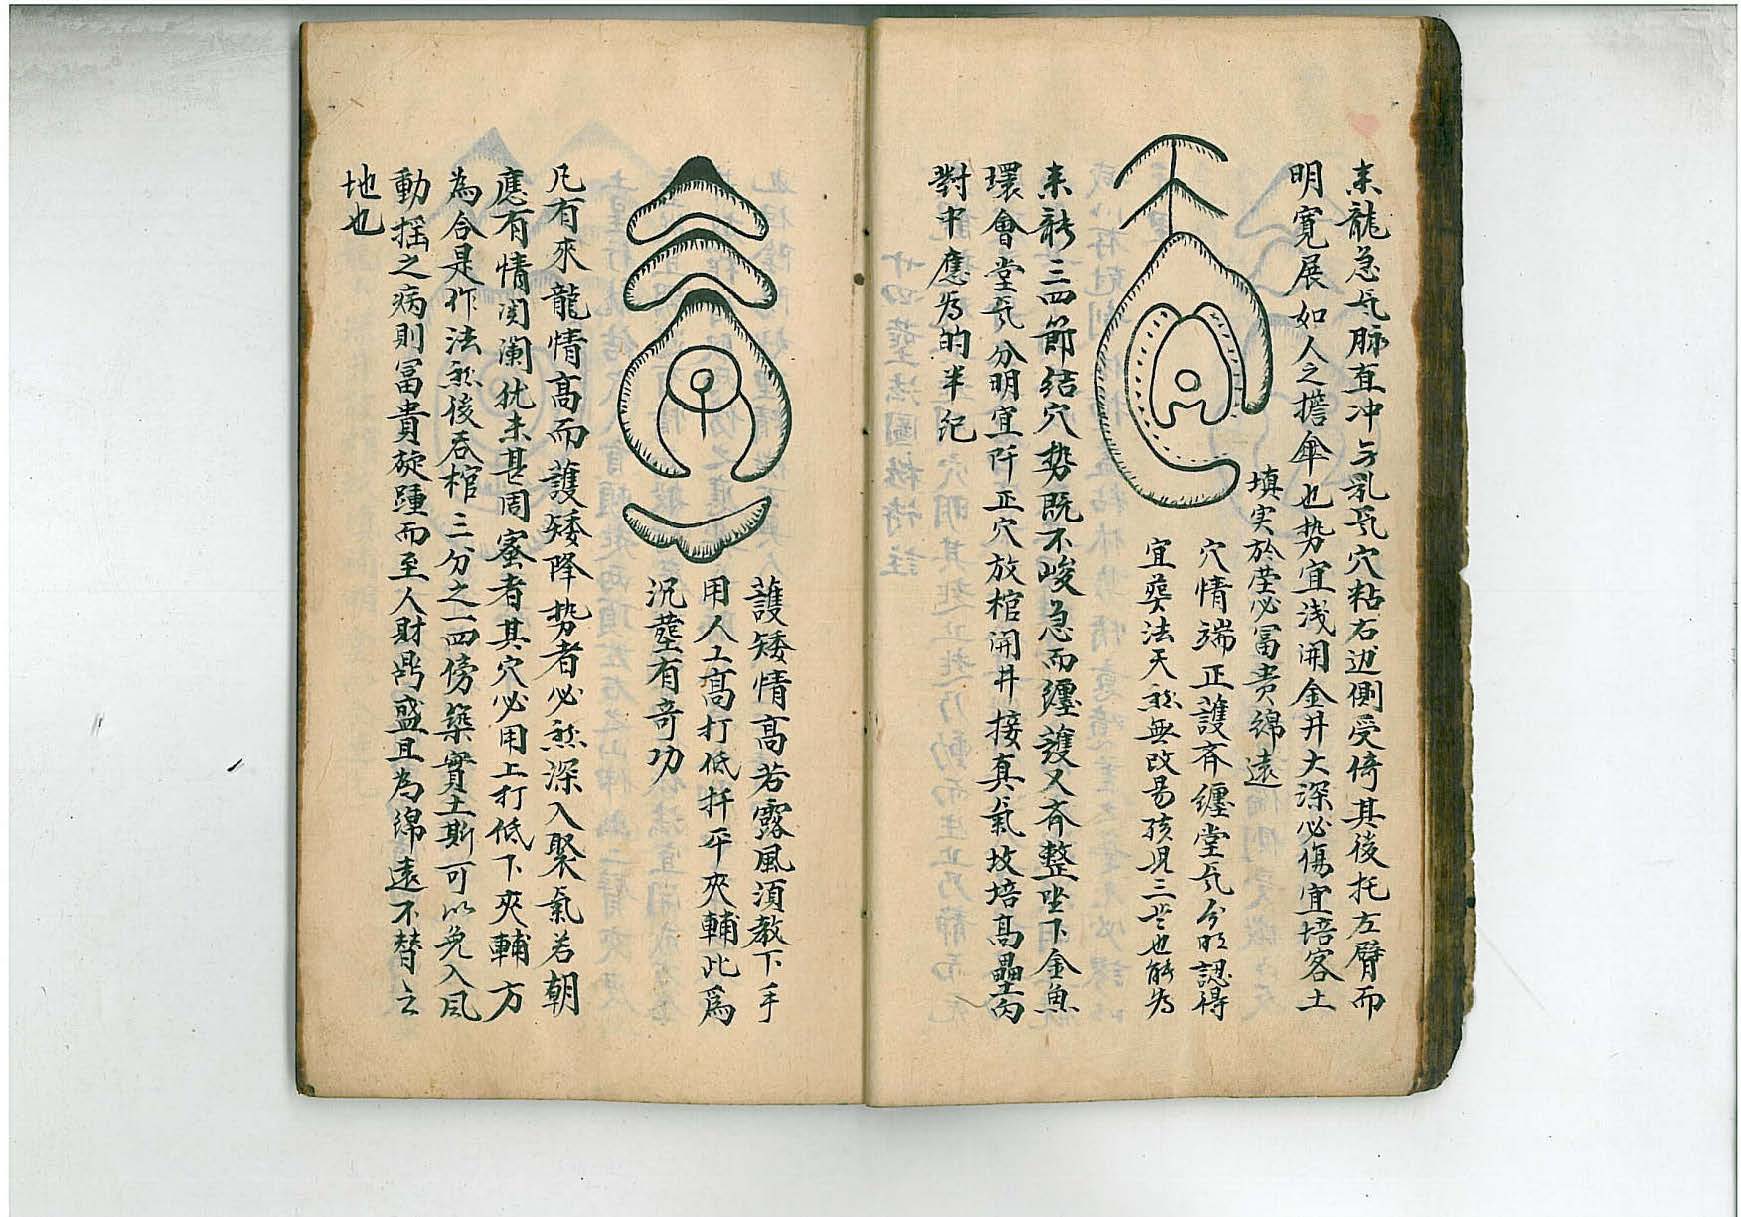 来龍急气脉直冲与乳气穴粘右边側受倚其後托左臂而
明寛展如人之擔傘也势宜浅開金井大深必傷宜培客土
填実於塋必冨贵綿遠
穴情端正護斉纒堂气分明認得
宜塟法天然無改易孩児三世也能为
来龍三四節结穴势既不峻急而纒護又斉整坐下金魚
環會堂气分明宜阡正穴放棺開井接真氣坟培高壘向
對中應为的半纪
護矮情高若露風須教下手
用人工高打低扦平夾輔此爲
况塟有奇功
凡有來龍情高而護矮降势者必然深入聚氣若朝
應有情関闌犹未甚周密者其穴必用上打低下夾輔方
為合是作法然後吞棺三分之一四傍築實土斯可以免入風
動摇之病則冨貴旋踵而至人財鼎盛且為綿遠不替之
地也